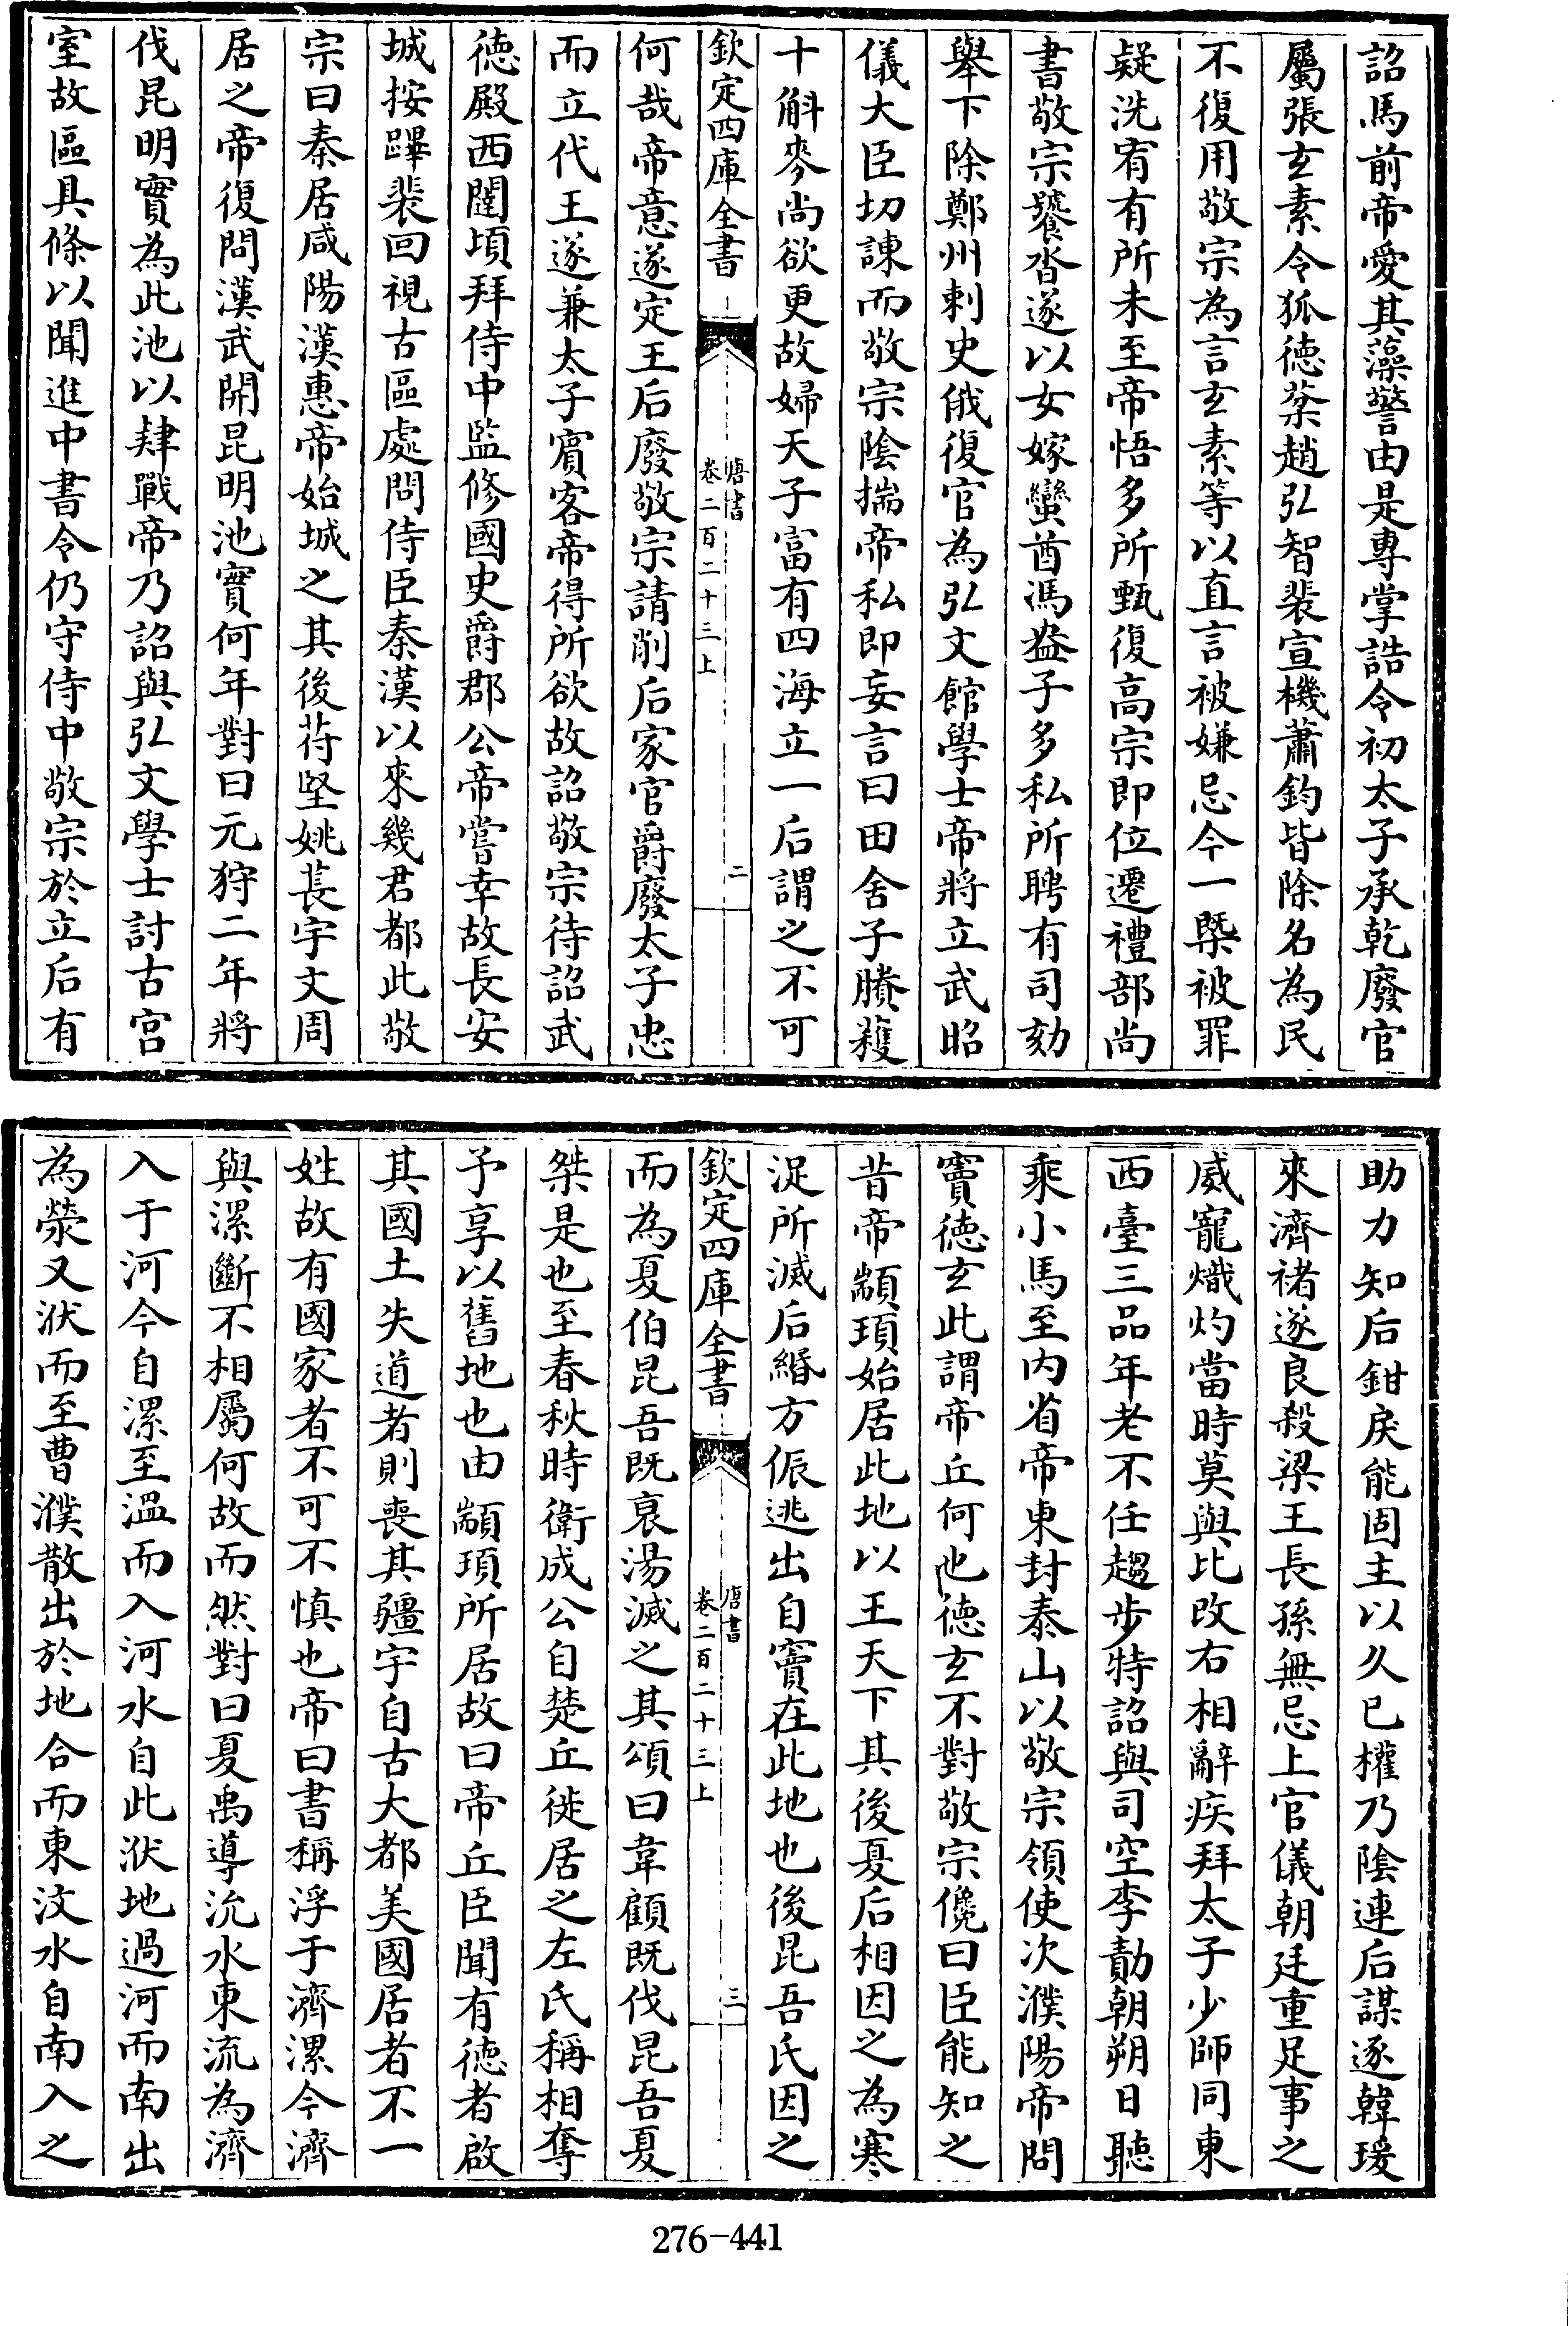 詔馬前帝愛其藻警由是專掌誥令初太子承乾廢官
屬張玄素令狐徳棻趙弘智裴宣機蕭鈞皆除名為民
不復用敬宗為言玄素等以直言被嫌忌今一槩被罪
疑洗宥有所未至帝悟多所甄復高宗即位遷禮部尚
書敬宗饕沓遂以女嫁蠻酋馮盎子多私所聘有司劾
舉下除鄭州刺史俄復官為弘文館學士帝將立武昭
儀大臣切諫而敬宗陰揣帝私即妄言曰田舍子賸穫
十斛麥尚欲更故婦天子富有四海立一后謂之不可
欽定四庫全書
唐書
卷二百二十三上
二
何哉帝意遂定王后廢敬宗請削后家官爵廢太子忠
而立代王遂兼太子賓客帝得所欲故詔敬宗待詔武
徳殿西闥頃拜侍中監修國史爵郡公帝嘗幸故長安
城按蹕裴回視古區處問侍臣秦漢以來幾君都此敬
宗曰秦居咸陽漢惠帝始城之其後苻堅姚萇宇文周
居之帝復問漢武開昆明池實何年對曰元狩二年將
伐昆明實為此池以肄戰帝乃詔與弘文學士討古宫
室故區具條以聞進中書令仍守侍中敬宗於立后有
助力知后鉗戾能固主以久已權乃陰連后謀逐韓瑗
來濟褚遂良殺梁王長孫無忌上官儀朝廷重足事之
威寵熾灼當時莫與比改右相辭疾拜太子少師同東
西臺三品年老不任趨步特詔與司空李勣朝朔日聽
乘小馬至内省帝東封泰山以敬宗領使次濮陽帝問
竇徳玄此謂帝丘何也徳玄不對敬宗儳曰臣能知之
昔帝顓頊始居此地以王天下其後夏后相因之為寒
浞所滅后緡方娠逃出自竇在此地也後昆吾氏因之
欽定四庫全書
唐書
卷二百二十三上
三
而為夏伯昆吾既衰湯滅之其頌曰韋顧既伐昆吾夏
桀是也至春秋時衛成公自楚丘徙居之左氏稱相奪
予享以舊地也由顓頊所居故曰帝丘臣聞有徳者啟
其國土失道者則喪其疆宇自古大都美國居者不一
姓故有國家者不可不慎也帝曰書稱浮于濟漯今濟
與漯斷不相屬何故而然對曰夏禹導沇水東流為濟
入于河今自漯至溫而入河水自此洑地過河而南出
為滎又洑而至曹濮散出於地合而東汶水自南入之
276-441